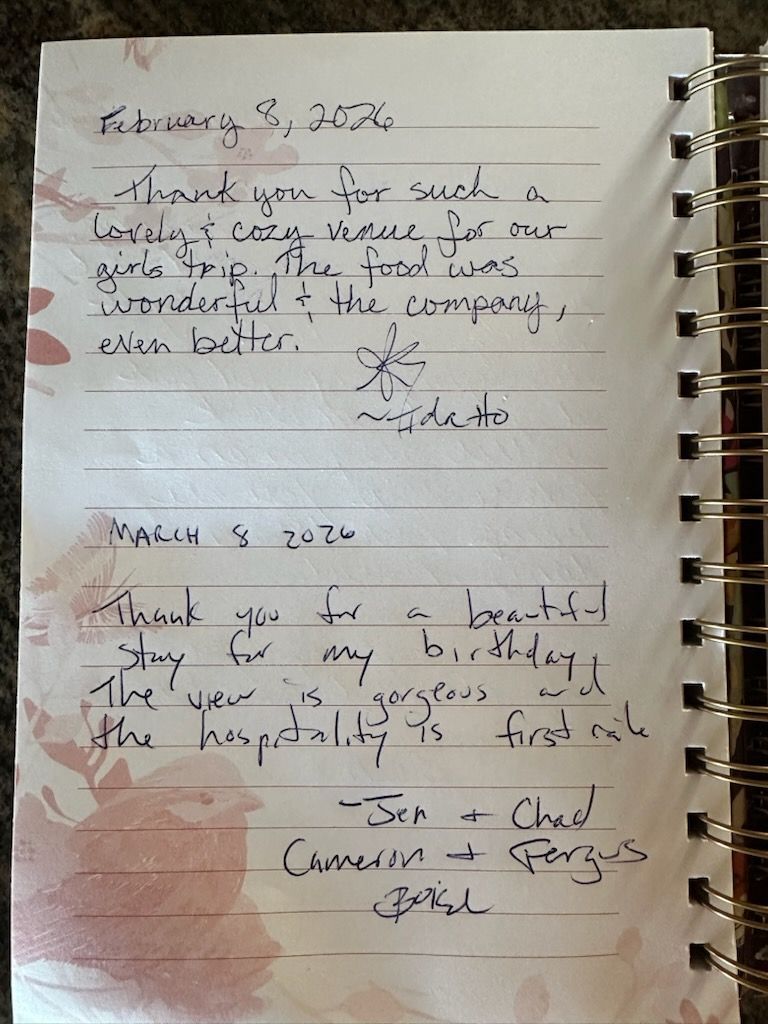 February 8, 2026
Thank you for such a
lovely & cozy venue for our
girls trip. The food was
wonderful & the company,
even better.
~Idaho
MARCH 8 2026
Thank you for a beautiful
stay for my birthday,
The view is gorgeous and
the hospitality is first rate
-Jen + Chad
Cameron + Fergus
Boise